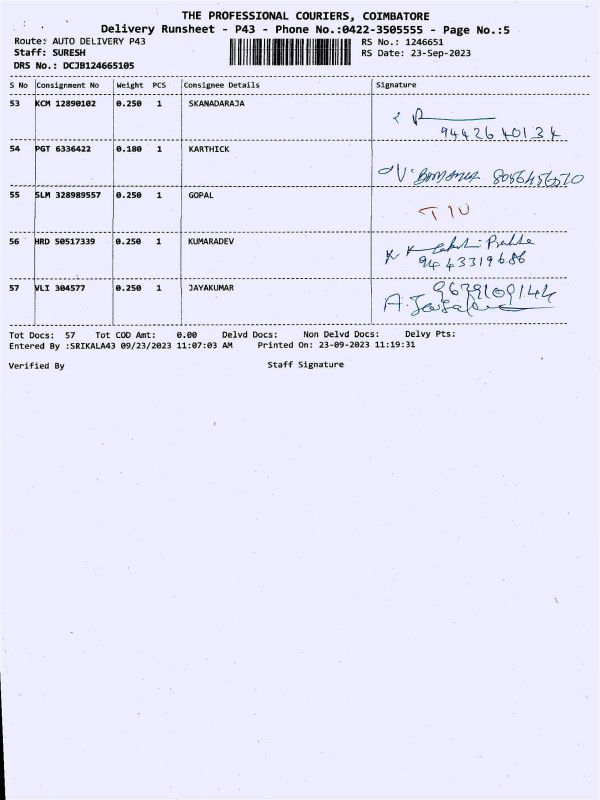 THE PROFESSIONAL COURIERS, COIMBATORE
Delivery Runsheet - P43 - Phone No.:0422-3505555 - Page No.:5
Route: AUTO DELIVERY P43 RS No.: 1246651
Staff: SURESH RS Date: 23-Sep-2023
DRS No.: DCJB124665105
S No Consignment No Weight PCS Consignee Details Signature
53 KCM 12890102 0.250 1 SKANADARAJA
54 PGT 6336422 0.180 1 KARTHICK
55 SLM 328989557 0.250 1 GOPAL
56 HRD 50517339 0.250 1 KUMARADEV
94 43319686
57 VLI 304577 0.250 1 JAYAKUMAR
9629109144
Tot Docs: 57 Tot COD Amt: 0.00 Delvd Docs: Non Delvd Docs: Delvy Pts:
Entered By :SRIKALA43 09/23/2023 11:07:03 AM Printed On: 23-09-2023 11:19:31
Verified By Staff Signature